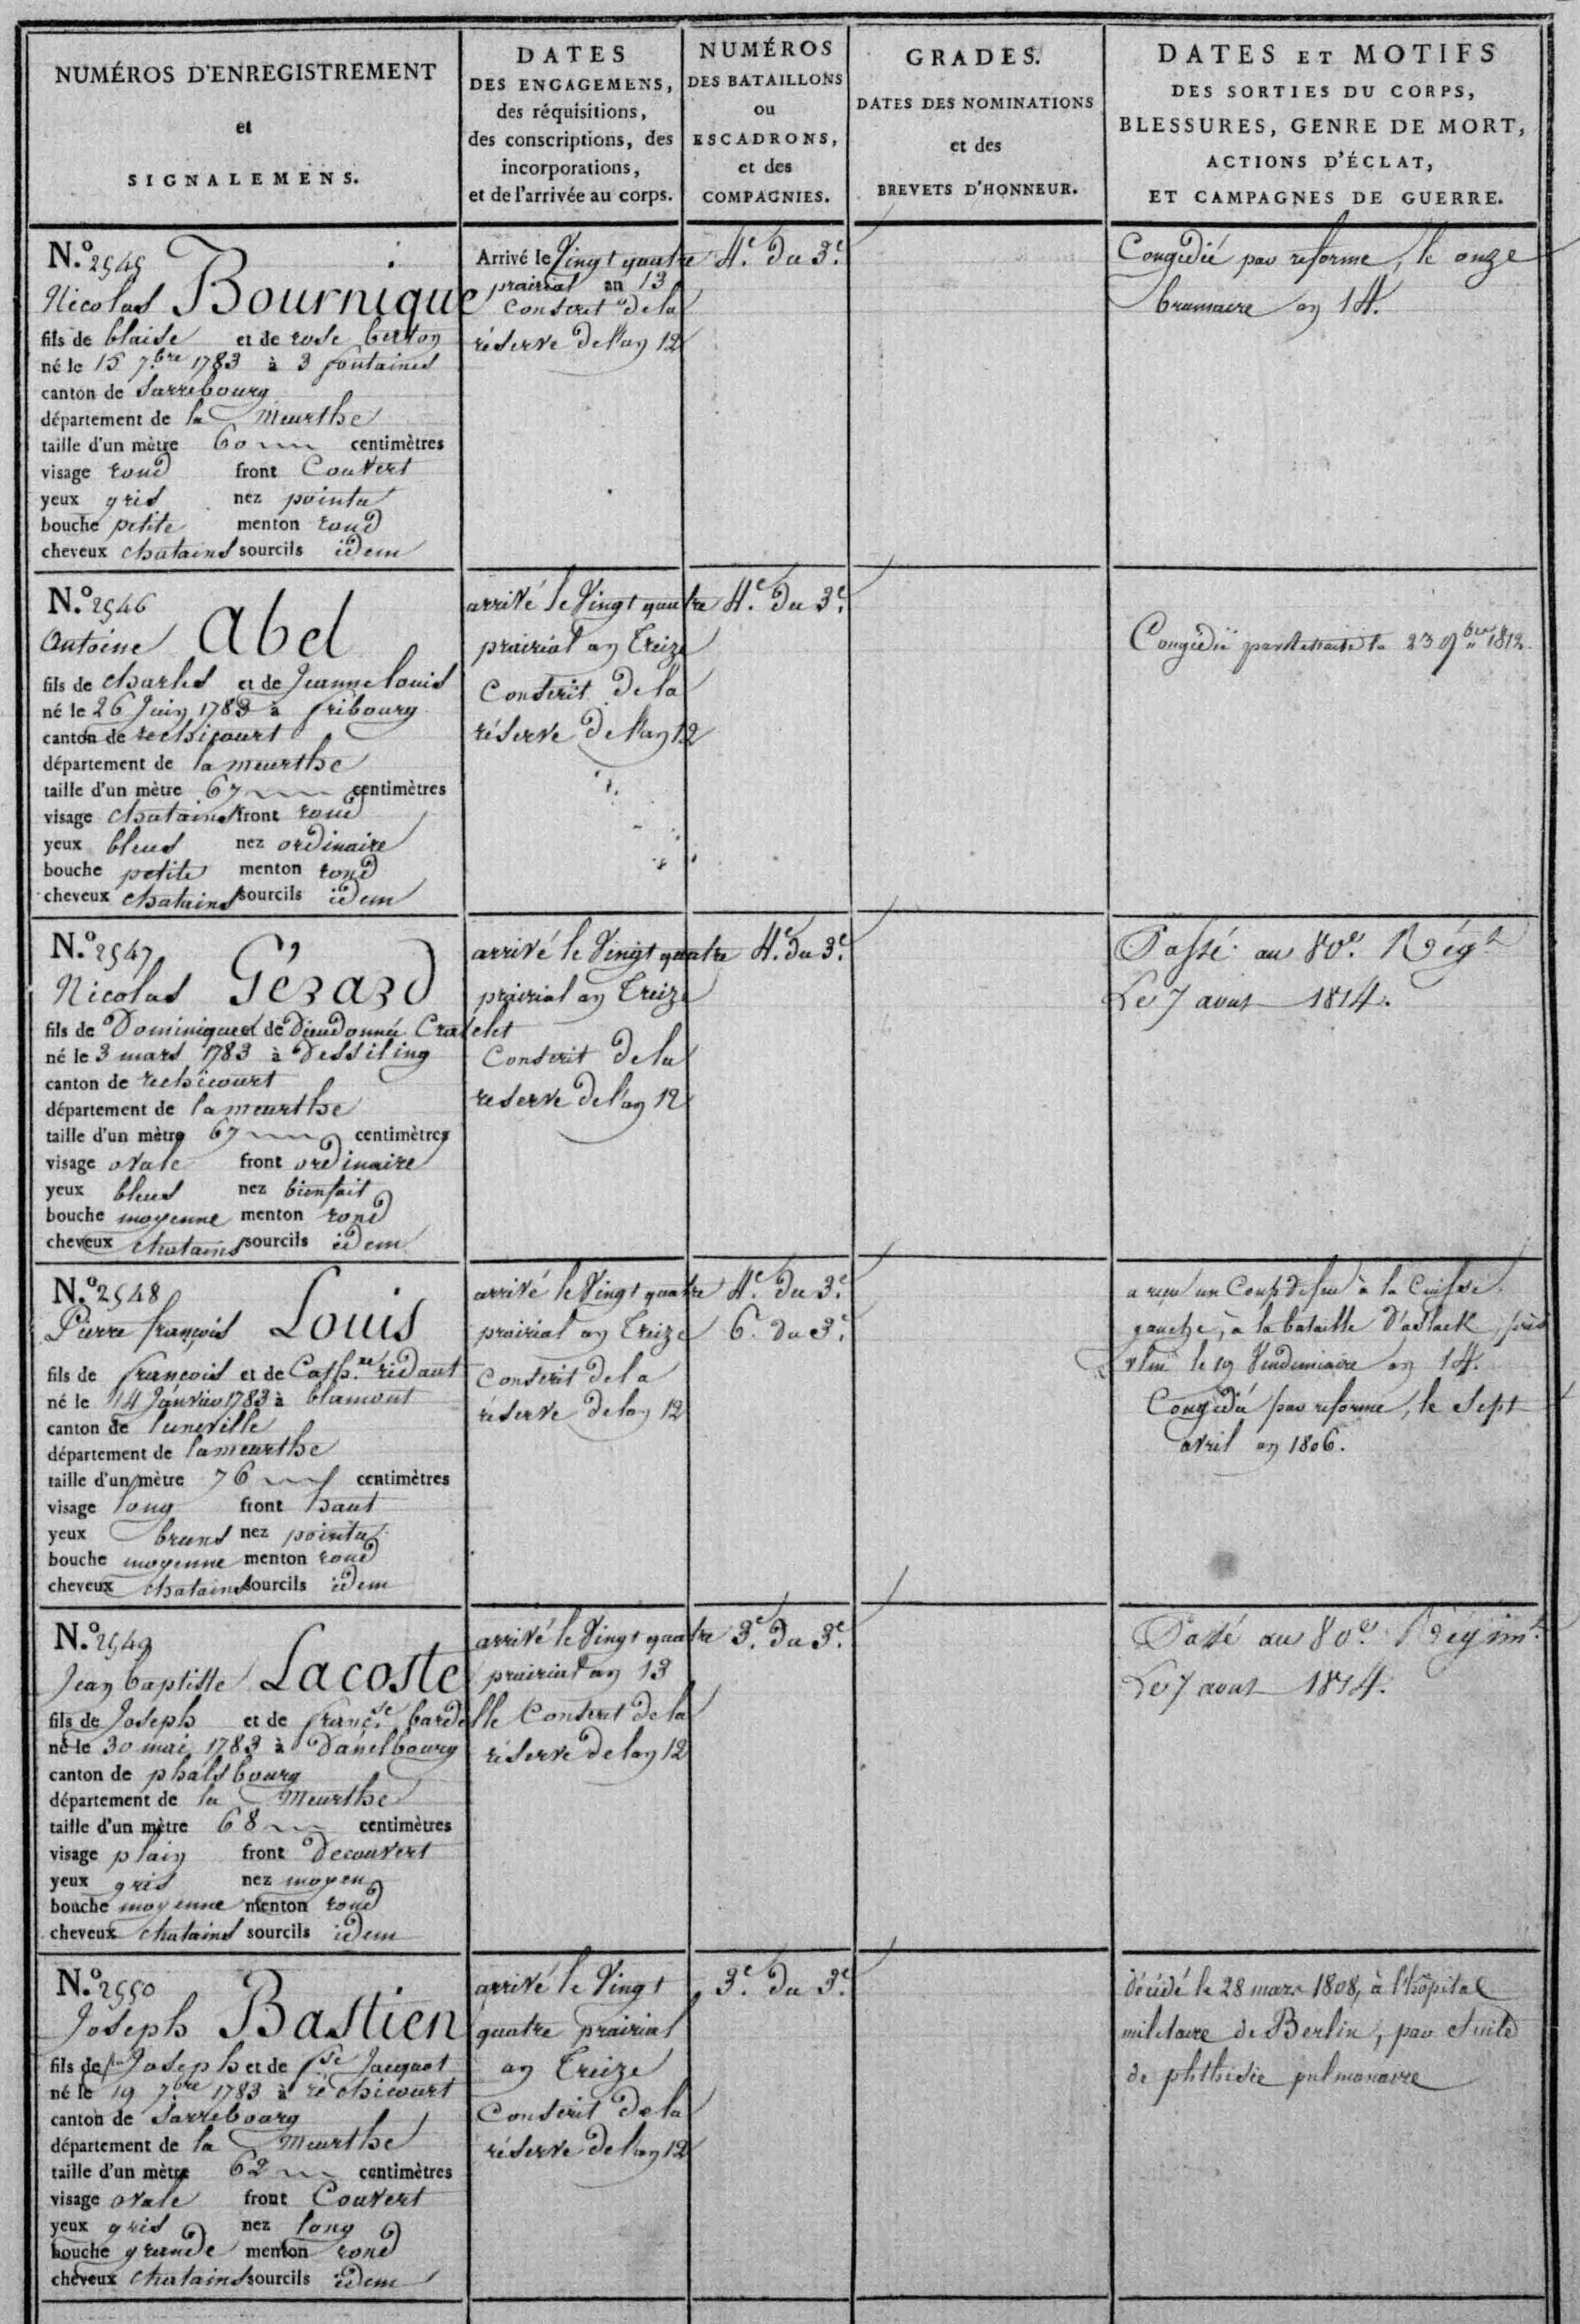 NUMÉROS D'ENREGISTREMENT
et
SIGNALEMENS.
DATES
DES ENGAGEMENS,
des réquisitions,
des conscriptions, des
incorporations,
et de l'arrivée au corps.
NUMÉROS
DES BATAILLONS
ou
ESCADRONS,
et des
COMPAGNIES.
GRADES.
DATES DES NOMINATIONS
et des
BREVETS D'HONNEUR.
DATES ET MOTIFS
DES SORTIES DU CORPS,
BLESSURES, GENRE DE MORT,
ACTIONS D'ÉCLAT,
ET CAMPAGNES DE GUERRE.
N.o 2545
Nicolas Bournique
fils de blaise et de rose berton
né le 15 7.bre 1783 à 3 fontaines
canton de Sarrebourg
département de la Meurthe
taille d'un mètre 60 centimètres
visage rond front Couvert
yeux gris nez pointu
bouche petite menton rond
cheveux chatains sourcils idem
Arrivé le Vingt quatre
prairial an 13
Conscrit de la
réserve de l'an 12
4.e du 3.e
Congédié par reforme, le onze
brumaire an 14.
N.o 2546
Antoine Abel
fils de charles et de Jeanne louis
né le 26 Juin 1783 à fribourg
canton de rechicourt
département de la meurthe
taille d'un mètre 67 centimètres
visage chatains front rond
yeux bleus nez ordinaire
bouche petite menton rond
cheveux chatains sourcils idem
arrivé le Vingt quatre
prairial an Treize
Conscrit de la
réserve de l'an 12
4.e du 3.e
Congédié par Retraite le 23 9.bre 1812.
N.o 2547
Nicolas Gérard
fils de Dominique et de Dieudonnée Cradelet
né le 3 mars 1783 à Dessiling
canton de rechicourt
département de la meurthe
taille d'un mètre 67 centimètres
visage ovale front ordinaire
yeux bleus nez bienfait
bouche moyenne menton rond
cheveux chatains sourcils idem
arrivé le Vingt quatre
prairial an Treize
Conscrit de la
reserve de l'an 12
4.e du 3.e
Passé au 80.e Rég.t
Le 7 aout 1814.
N.o 2548
Pierre françois Louis
fils de françois et de Cath.ne ridant
né le 14 Janvier 1783 à blamont
canton de luneville
département de la meurthe
taille d'un mètre 76 centimètres
visage long front haut
yeux bruns nez pointu
bouche moyenne menton rond
cheveux chatains sourcils idem
arrivé le Vingt quatre
prairial an Treize
Conscrit de la
réserve de lan 12
4.e du 3.e
6.e du 3.e
a reçu un Coup de feu à la Cuisse
gauche, à la bataille d'aslack, près
Ulm le 19 Vendemiaire an 14.
Congédié par reforme, le Sept
avril an 1806.
N.o 2549
Jean baptiste Lacoste
fils de Joseph et de franç.se bardelle
né le 30 mai 1783 à Danelbourg
canton de phalsbourg
département de la Meurthe
taille d'un mètre 68 centimètres
visage plain front Decouvert
yeux gris nez moyen
bouche moyenne menton rond
cheveux chatains sourcils idem
arrivé le Vingt quatre
prairial an 13
Conscrit de la
réserve de lan 12
3.e du 3.e
Passé au 80.e Régim.t
Le 7 aout 1814.
N.o 2550
Joseph Bastien
fils de Joseph et de f.se Jacquot
né le 19 7.bre 1783 à rechicourt
canton de Sarrebourg
département de la Meurthe
taille d'un mètre 62 centimètres
visage ovale front Couvert
yeux gris nez long
bouche grande menton rond
cheveux chatains sourcils idem
arrivé le Vingt
quatre prairial
an Treize
Conscrit de la
réserve de l'an 12
3.e du 3.e
décédé le 28 mars 1808, à l'hôpital
militaire de Berlin, par suite
de phthisie pulmonaire